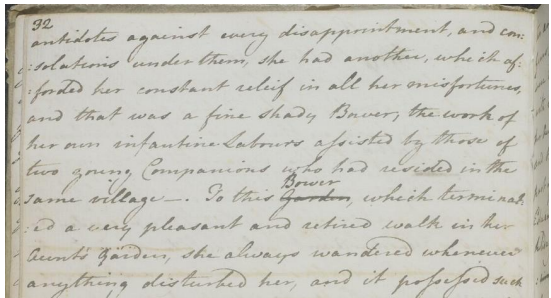 32
antidotes against every disappointment, and con:
:solations under them, she had another, which af:
:forded her constant releif in all her misfortunes,
and that was a fine shady Bower, the work of
her own infantine Labours assisted by those of
two young Companions who had resided in the
same village —. To this Garden Bower, which terminat:
:ed a very pleasant and retired walk in her
Aunt's Garden, she always wandered whenever
anything disturbed her, and it possessed such